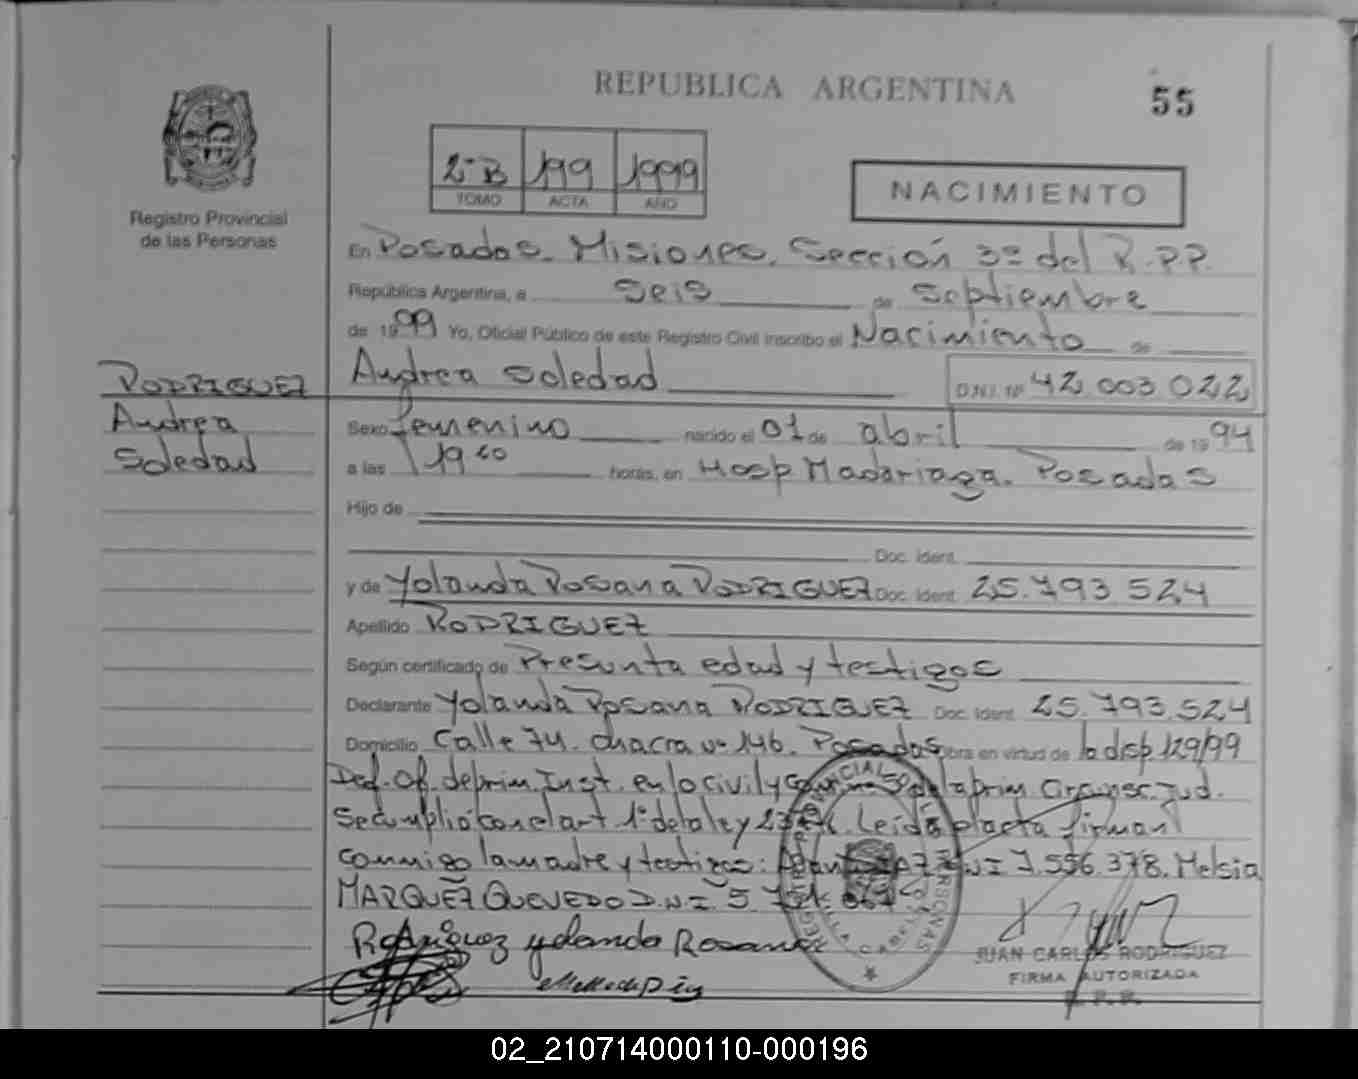 REPUBLICA ARGENTINA
55
2º B 199 1999
TOMO ACTA AÑO
NACIMIENTO
Registro Provincial
de las Personas
En Posadas. Misiones. Sección 3ª del R.P.P.
República Argentina, a seis de Septiembre
de 1999 Yo, Oficial Público de este Registro Civil inscribo el Nacimiento de
Andrea Soledad D.N.I. Nº 42.003.022
RODRIGUEZ
Andrea
Soledad
Sexo femenino nacido el 01 de abril de 1994
a las 19 horas, en Hosp Madariaga. Posadas
Hijo de
Doc. Ident.
y de Yolanda Rosana RODRIGUEZ Doc. Ident. 25.793.524
Apellido RODRIGUEZ
Según certificado de Presunta edad y testigos
Declarante Yolanda Rosana RODRIGUEZ Doc. Ident. 25.793.524
Domicilio Calle 74. chacra nº 146. Posadas Obra en virtud de la disp 129/99
Def. Of. de prim. Inst. en lo civil y de la prim Circunsc. Jud.
Se cumplió con el art. 1º de la ley Leida el acta firman
conmigo la madre y testigos: D.N.I 7.556.378. Melsia
MARQUEZ QUEVEDO D.N.I. 5.
Rodriguez yolanda Rosana
JUAN CARLOS RODRIGUEZ
FIRMA AUTORIZADA
R. P. P.
02_210714000110-000196